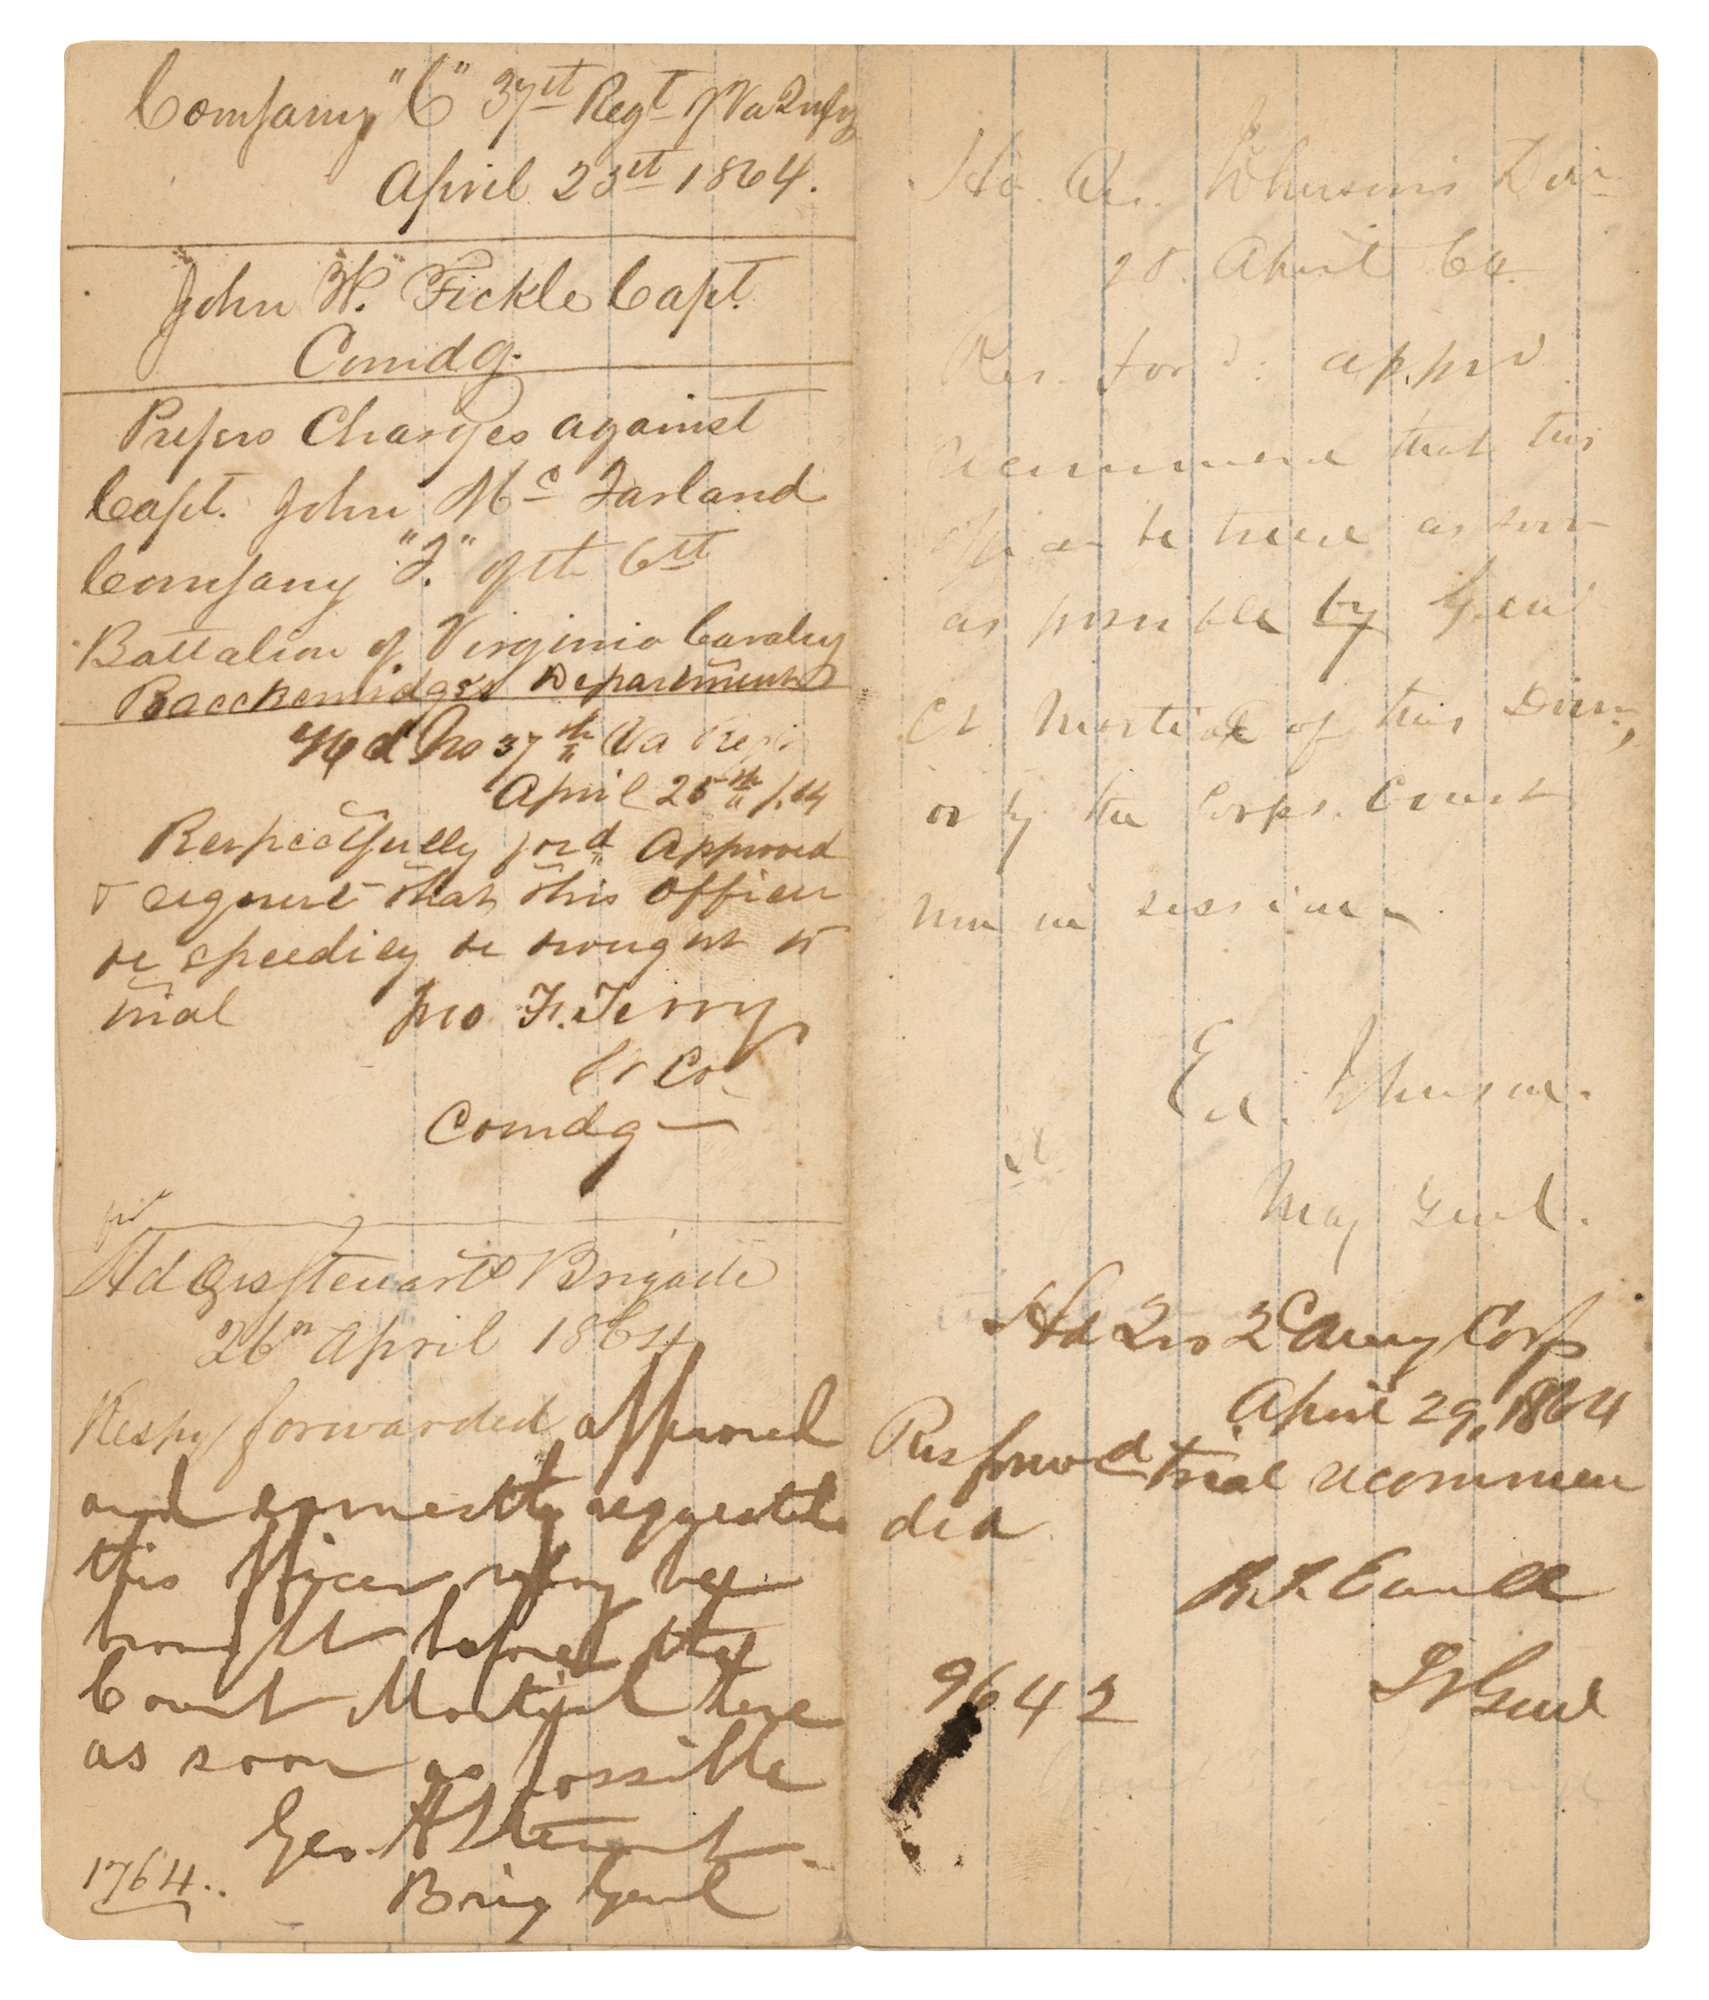 Company "C" 37st Regt Va Infy
April 23st 1864.
John W. Fickle Capt.
Comdg.
Prefers Charges against
Capt. John Mc Farland
Company "F." of the 6st
Battalion of Virginia Cavalry
Breckenridges Department
Hd Qrs 37th Va Regt
April 25th /64
Respectfully ford Approved
& request that this officer
be speedily be brought to
trial Jno F. Terry
Lt Col
Comdg
Hd Qrs Steuarts Brigade
26th April 1864
Respy forwarded approved
and earnestly request that
this officer may be
brought before the
Court Martial here
as soon as possible
Geo. H Steuart
Brig Genl
1764.
Hd. Qr. Johnson's Div
28. April 64.
Res. ford: appvd
recommend that this
officer be tried as soon
as possible by Genl
Ct. Martial of this Divn,
or by the Corps. Court
now in session
Ed. Johnson.
Maj Genl.
Hd Qrs 2d Army Corps
April 29, 1864
Res forwd trial recommen
ded
R. S. Ewell
Lt Genl
9642